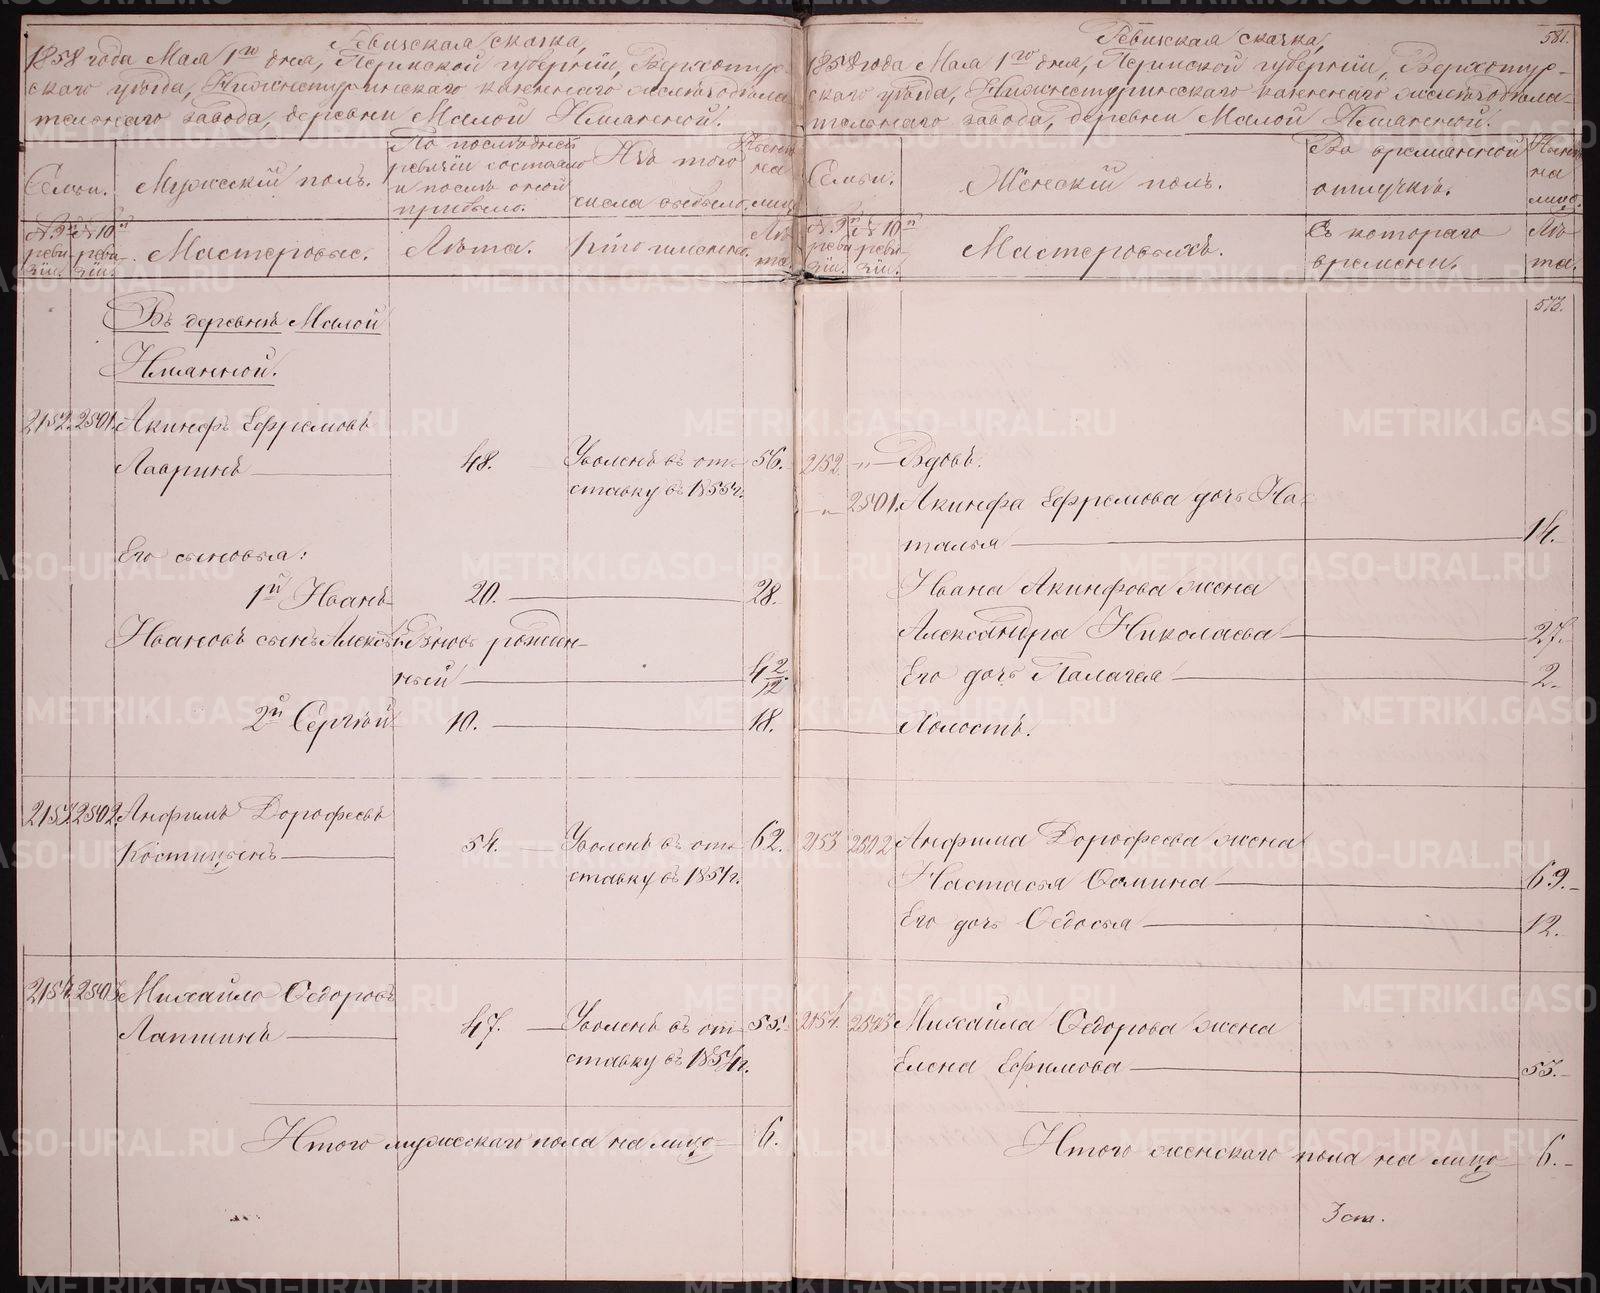 Ревизская сказка,
1858 года Мая 1го дня, Пермской губернiи, Верхотур-
скаго уѣзда, Нижнетуринскаго казеннаго желѣзодѣла-
тельнаго завода, деревни Малой Именной.
Семьи.
Мужескiй полъ.
По послѣдней
ревизiи состояло
и послѣ оной
прибыло.
Изъ того
числа выбыло.
Нынѣ
на
лицо
№ 9й
реви-
зiи.
№ 10й
реви-
зiи.
Мастеровые.
Лѣта.
Кто именно.
Лѣ-
та.
Въ деревнѣ Малой
Именной.
2152. 2501. Акинфъ Ефремовъ
Лавринъ 48. Уволенъ въ от- 56.
ставку въ 1855 г.
Его сыновья:
1й Иванъ 20. 28.
Ивановъ сынъ Алексѣй Вновь рожден-
ный 4 2/12.
2й Сергiй 10. 18.
2153. 2502. Анфимъ Дорофеевъ
Костицынъ 54. Уволенъ въ от- 62.
ставку въ 1854 г.
2154. 2503. Михайло Ѳедоровъ
Лапшинъ 47. Уволенъ въ от- 55.
ставку въ 1854 г.
Итого мужескаго пола на лицо 6.
581.
Ревизская сказка,
1858 года Мая 1го дня, Пермской губернiи, Верхотур-
скаго уѣзда, Нижнетуринскаго казеннаго желѣзодѣла-
тельнаго завода, деревни Малой Именной.
Семьи.
Женскiй полъ.
Во временной
отлучкѣ.
Нынѣ
на
лицо.
№ 9й
реви-
зiи.
№ 10й
реви-
зiи.
Мастеровыхъ.
Съ котораго
времени.
Лѣ-
та.
573.
2152. " Вдовъ.
" 2501. Акинфа Ефремова дочь На-
талья 14.
Ивана Акинфова жена
Александра Николаева 27.
Его дочь Палагея 2.
Холостъ.
2153 2502 Анфима Дорофеева жена
Настасья Фомина 69.
Его дочь Ѳедосья 12.
2154. 2503 Михайла Ѳедорова жена
Елена Ефимова 55.
Итого женскаго пола на лицо 6.
METRIKI.GASO-URAL.RU